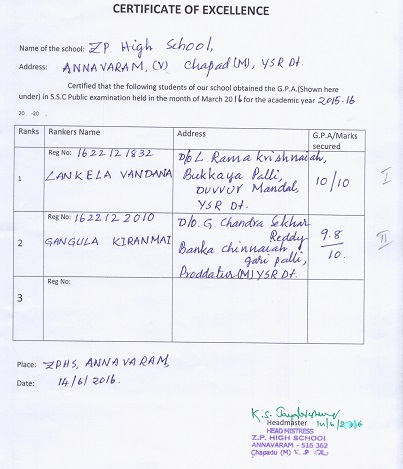 CERTIFICATE OF EXCELLENCE
Name of the school: Z.P. High School,
Address: ANNAVARAM, (V) Chapad (M), YSR Dt.
Certified that the following students of our school obtained the G.P.A.(Shown here
under) in S.S.C Public examination held in the month of March 2016 for the academic year 2015-16
20 -20 .
Ranks Rankers Name Address G.P.A/Marks secured
1 Reg No: 1622121832
LANKELA VANDANA
D/o L. Rama Krishnaiah,
Bukkaya Palli,
DUVVUR Mandal,
YSR Dt.
10/10 I
2 Reg No: 1622122010
GANGULA KIRANMAI
D/o. G. Chandra Sekhar
Reddy
Banka chinnaiah
gari palli,
Proddatur(M) YSR Dt.
9.8
10. II
3 Reg No:
Place: ZPHS, ANNAVARAM,
Date: 14/6/2016.
Headmaster
HEADMISTRESS
Z.P. HIGH SCHOOL
ANNAVARAM - 516 362
Chapadu (M)